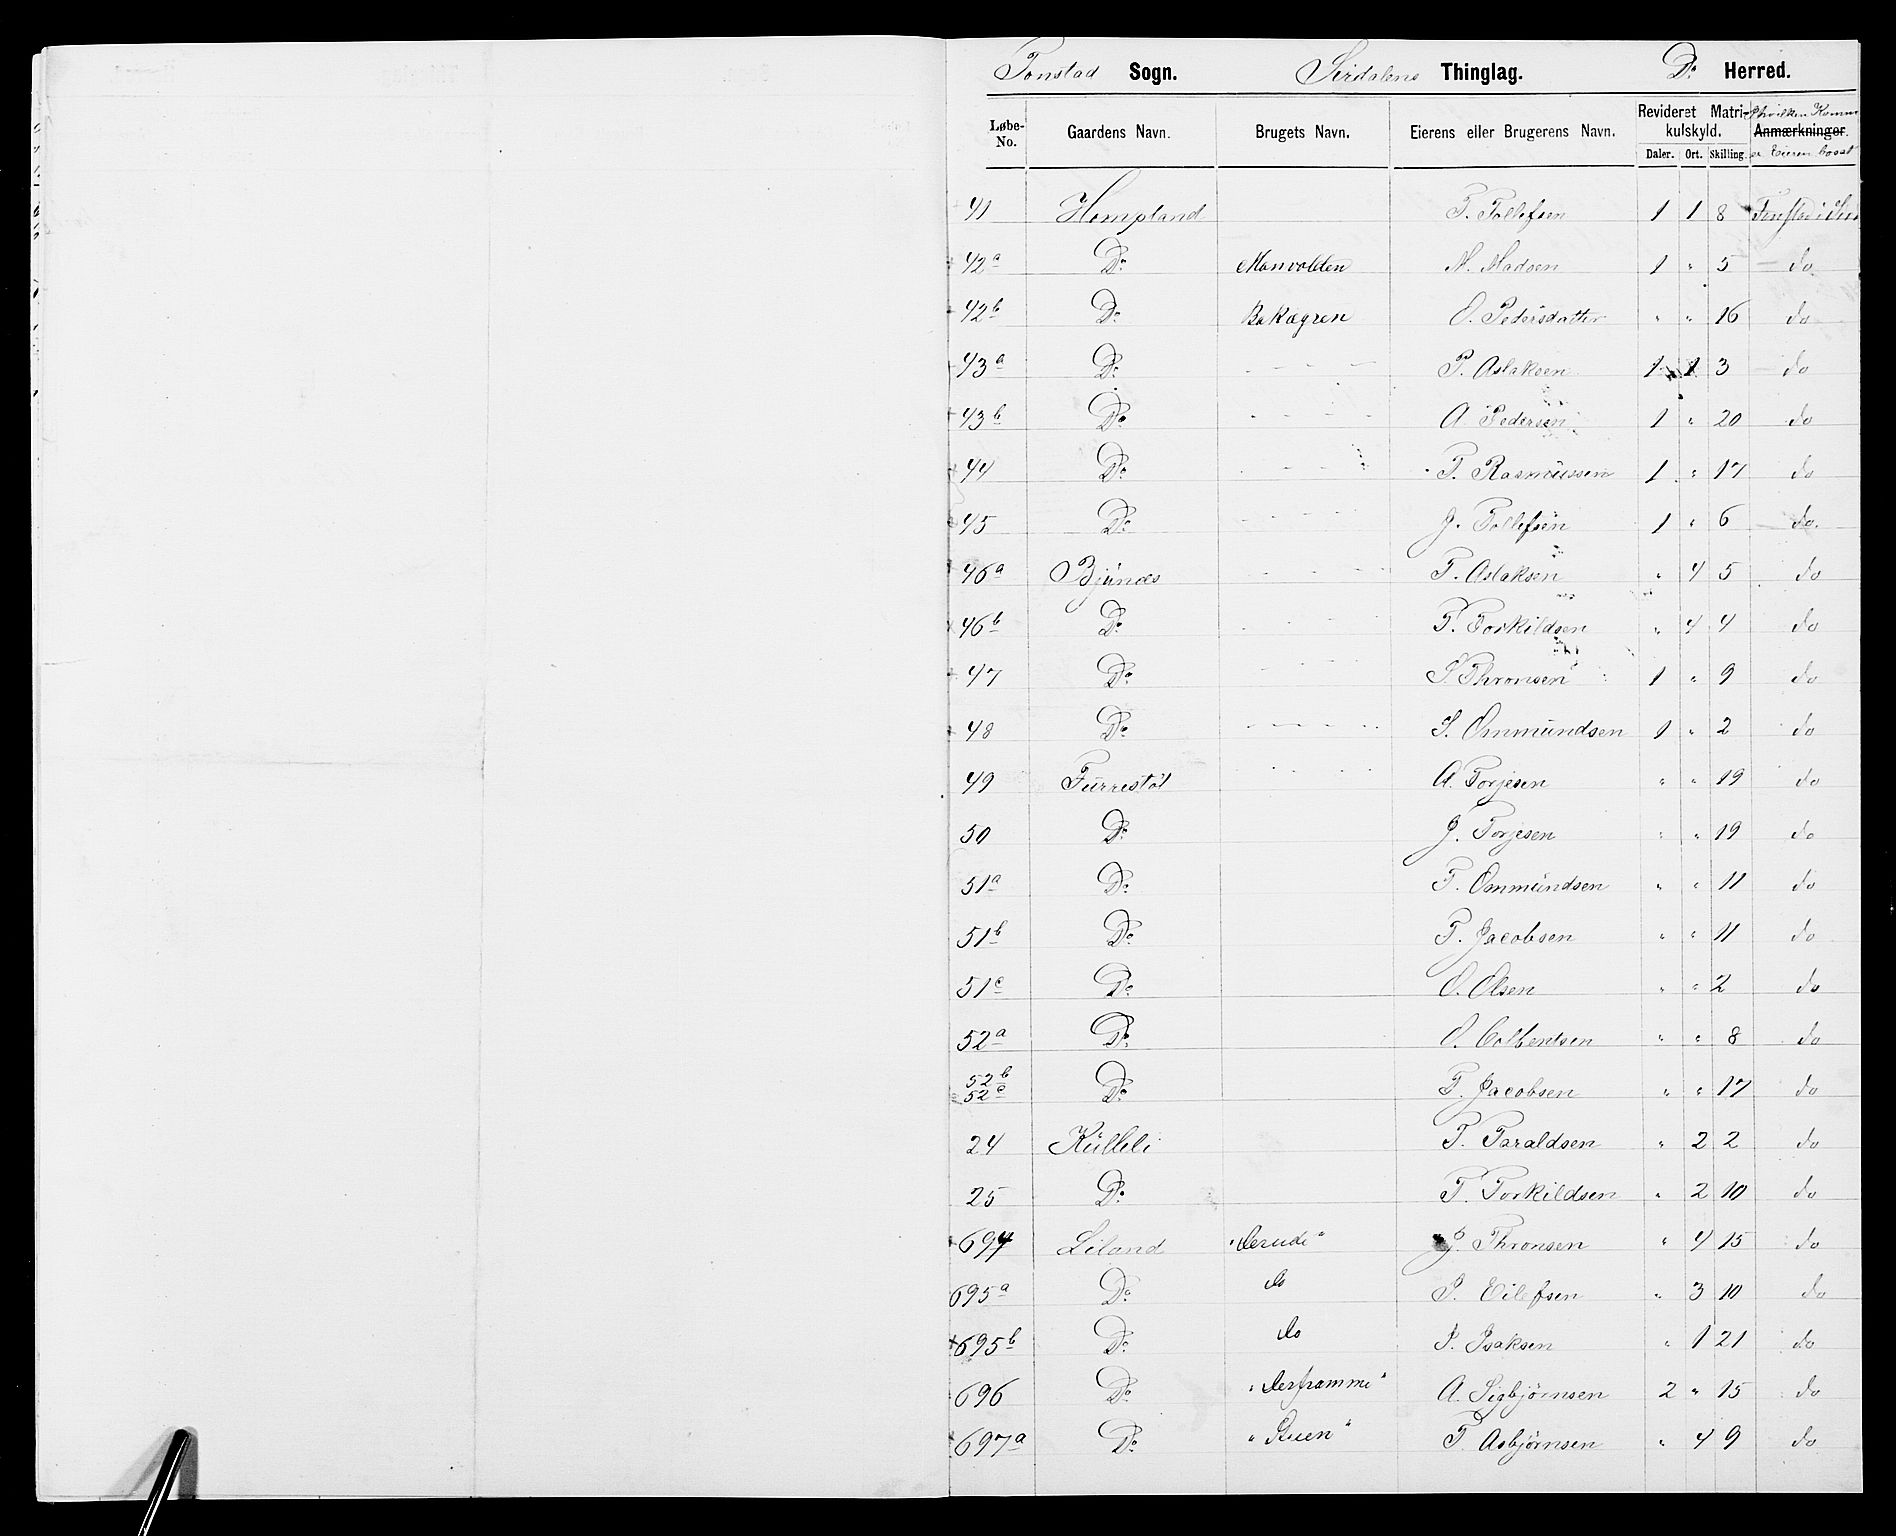 Tonstad Sogn. Sirdalens Thinglag. Do Herred.
Løbe-No. Gaardens Navn. Brugets Navn. Eierens eller Brugerens Navn. Revideret Matrikulskyld. Daler. Ort. Skilling. Anmærkninger. er Eieren bosat
41 Hompland T. Tollefsen 1 1 8 Tonstad i
42a Do Monvolden M. Madsen 1 " 5 do
42b Do Bakagren O. Pedersdatter " " 16 do
43a Do - - - - P. Aslaksen 1 1 3 do
43b Do - - - - A. Pedersen 1 " 20 do
44 Do - - - - T. Rasmussen 1 " 17 do
45 Do - - - - J. Tollefsen 1 " 6 do
46a Bjunæs - - - - T. Aslaksen " 4 5 do
46b Do - - - - T. Torkildsen " 4 4 do
47 Do - - - - T. Thronsen 1 " 9 do
48 Do - - - - S. Ommundsen 1 " 2 do
49 Furrestøl - - - - A. Torjesen " " 19 do
50 Do J. Torjesen " " 19 do
51a Do T. Ommundsen " " 11 do
51b Do T. Jacobsen " " 11 do
51c Do O. Olsen " " 2 do
52a Do O. " " 8 do
52b
52c Do T. Jacobsen " " 17 do
24 Kulleli T. Taraldsen " 2 2 do
25 Do T. Torkildsen " 2 10 do
694 Liland "Nerudi" J. Thronsen " 4 15 do
695a Do do P. Eilefsen " 3 10 do
695b Do do P. Isaksen " 1 21 do
696 Do "Nerframmi" A. Sigbjørnsen 2 " 15 do
697a Do "Stuen" T. Asbjørnsen " 4 9 do